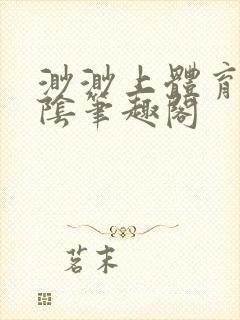 渺渺上體育
陰筆趣閣
茗末